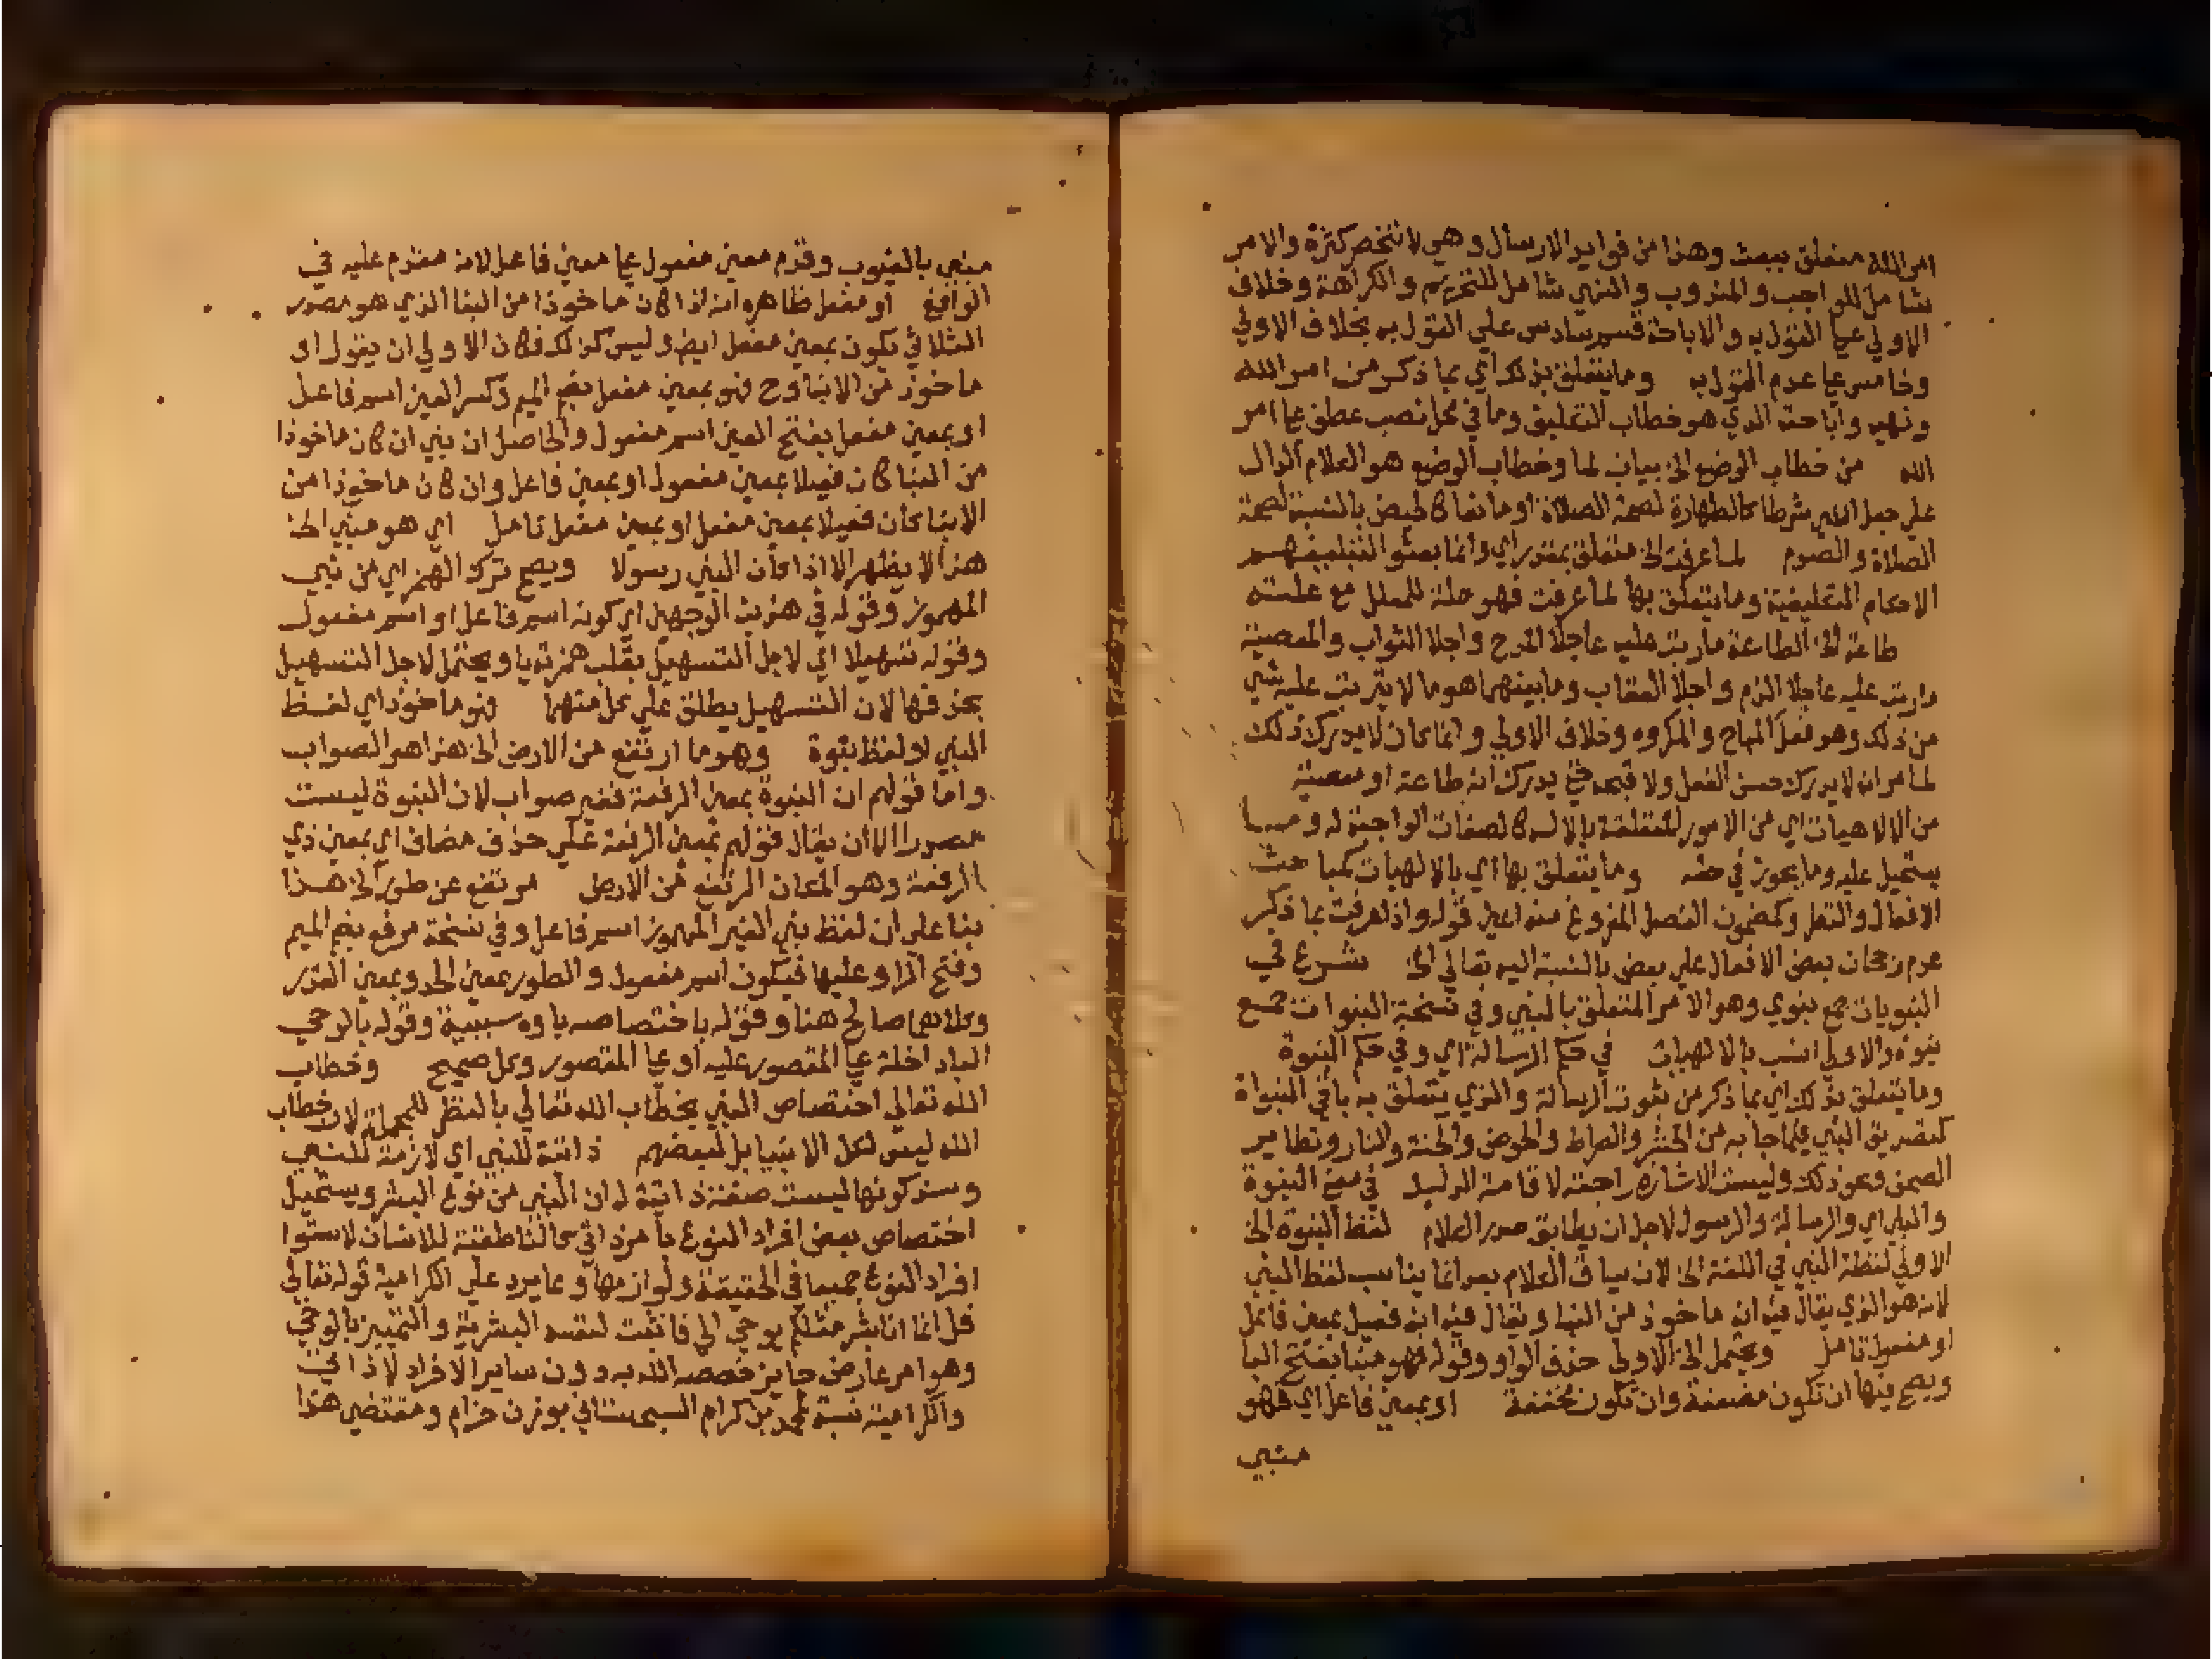 امر الله متعلق ببعث وهذا من فوايد الارسال وهي لا تنحصر كثرة والامر
شامل للواجب والمندوب والنهي شامل للتحريم والكراهة وخلاف
الاولي علي القول به والاباحة قسم سادس علي القول به بخلاف الاولي
وخامس علي عدم القول به وما يتعلق بذلك اي بما ذكر من امر الله
ونهيه واباحته الذي هو خطاب التعليق وما في محل نصب عطف علي امر
الله من خطاب الوضع الخ بيان لما وخطاب الوضع هو الكلام الدال
علي جعل الشي شرطا كالطهارة لصحة الصلاة او مانعا كالحيض بالنسبة لصحة
الصلاة والصوم لما عرفت الخ متعلق بمقدر اي وانما بعثوا لتبليغهم
الاحكام التكليفية وما يتعلق بها لما عرفت فهو علة للمعلل مع علته
طاعة الخ الطاعة ما رتب عليه عاجلا المدح واجلا الثواب والمعصية
ما رتب عليه عاجلا الذم واجلا العقاب وما بينهما هو ما لا يترتب عليه شي
من ذلك وهو فعل المباح والمكروه وخلاف الاولي وانما كان لا يدرك ذلك
لما مر انه لا يدرك حسن الفعل ولا قبحه حتي يدرك انه طاعة او معصية
من الالاهيات اي من الامور المتعلقة بالاله كالصفات الواجبة له وما
يستحيل عليه وما يجوز في حقه وما يتعلق بها اي بالالهيات كمباحث
الافعال والتعل وكمضمون الفصل المفروغ منه اعني قوله واذا عرفت بما ذكر
عدم رجحان بعض الافعال علي بعض بالنسبة اليه تعالي الخ شرع في
النبويات جمع نبوي وهو الامر المتعلق بالنبي وفي نسخة النبوات جمع
نبوة والاولي انسب بالالهيات في حكم الرسالة اي وفي حكم النبوة
وما يتعلق بذلك اي بما ذكر من ثبوت الرسالة والذي يتعلق به باقي النبواة
كتصديق النبي فيما جا به من الحشر والصراط والحوض والجنة والنار وتطاير
الصحف ونحو ذلك وليست الاشارة راجعة لاقامة الدليل في معني النبوة
والنبي اي والرسالة والرسول لاجل ان يطابق صدر الكلام لفظ النبوة الخ
الاولي لفظة النبي في اللغة الخ لان سياق الكلام بعد انما يناسب لفظ النبي
لانه هو الذي يقال فيه انه ماخوذ من النبا ويقال فيه انه فعيل بمعني فاعل
او مفعول تامل ويحتمل الخ الاولي حذف الواو وقوله فهو منبا بفتح البا
ويصح فيها ان تكون مضعفة وان تكون مخففة او بمعني فاعل اي فهو
منبي
منبي بالغيوب وقدم معني مفعول علي معني فاعل لانه مقدم عليه في
الواقع او مفعل ظاهره انه اذا كان ماخوذا من النبا الذي هو مصدر
الثلاثي يكون بمعني مفعل ايضا وليس كذلك فكان الاولي ان يقول او
ماخوذ من الانبا وح فهو بمعني مفعل بضم الميم وكسر العين اسم فاعل
او بمعني مفعل بفتح العين اسم مفعول والحاصل ان نبي ان كان ماخوذا
من النبا كان فعيلا بمعني مفعول او بمعني فاعل وان كان ماخوذا من
الانبا كان فعيلا بمعني مفعل او بمعني مفعل تامل اي هو منبي الخ
هذا لا يظهر الا اذا كان النبي رسولا ويصح ترك الهمز اي من نبي
المهموز وقوله في هذين الوجهين اي كونه اسم فاعل او اسم مفعول
وقوله تسهيلا اي لاجل التسهيل بقلب همزته يا ويحتمل لاجل التسهيل
بحذفها لان التسهيل يطلق علي كل منهما فهو ماخوذ اي لفظ
النبي لا لفظ نبوة وهو ما ارتفع من الارض الخ هذا هو الصواب
واما قولهم ان النبوة بمعني الرفعة فغير صواب لان النبوة ليست
مصدرا الا ان يقال قولهم بمعني الرفعة علي حذف مضاف اي بمعني ذي
الرفعة وهو المكان المرتفع من الارض مرتفع عن طور الخ هذا
بنا علي ان لفظ نبي الغير المهموز اسم فاعل وفي نسخة مرفع بضم الميم
وفتح الرا وعليها فيكون اسم مفعول والطور بمعني الحد وبمعني القدر
وكلاهما صالح هنا وقوله باختصاصه باوه سببية وقوله بالوحي
البا داخلة علي المقصور عليه او علي المقصور وكل صحيح وخطاب
الله تعالي اختصاص النبي بخطاب الله تعالي بالنظر للجملة لان خطاب
الله ليس لكل الانبيا بل لبعضهم ذاتية للنبي اي لازمة للنبي
وسند كونها ليست صفة ذاتية له ان النبي من نوع البشر ويستحيل
اختصاص بعض افراد النوع بامر ذاتي كالناطقية للانسان لاستوا
افراد النوع جميعا في الحقيقة ولوازمها ومما يرد علي الكرامية قوله تعالي
قل انما انا بشر مثلكم يوحي الي فاثبت لنفسه البشرية والتمييز بالوحي
وهو امر عارض جايز خصصه الله به دون ساير الافراد لا ذاتي
والكرامية نسبة لمحمد بن كرام السجستاني بوزن حزام ومقتضي هذا